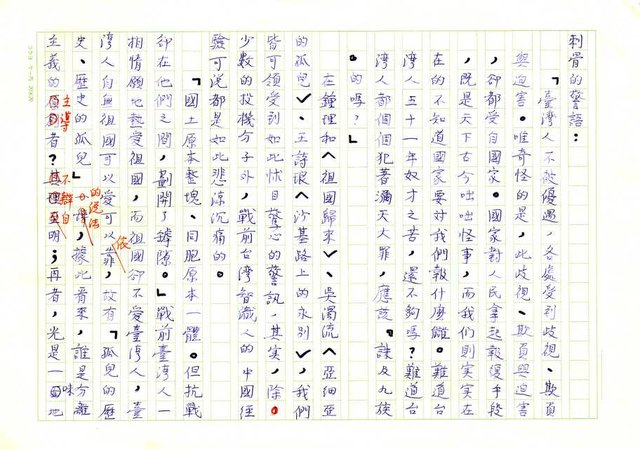 刺骨的警語：
「臺灣人不被優遇，各處受到歧視、欺負
與迫害。唯奇怪的是，此歧視、欺負與迫害
，卻都受自國家。國家對人民拿起報復手段
，既是天下古今咄咄怪事，而我們則實實在
在的不知道國家要對我們報什麼讎。難道台
灣人五十一年奴才之苦，還不夠嗎？難道台
灣人都個個犯著瀰天大罪，應該『誅及九族
』的嗎？」
在鍾理和〈祖國歸來〉、吳濁流〈亞細亞
的孤兒〉、王詩琅〈沙基路上的永別〉，我們
皆可領受到如此怵目驚心的警訊，其實，除
少數的投機分子外，戰前台灣智識人的中國經
驗可說都是如此悲涼沉痛的。
「國土原本整塊、同胞原本一體。但抗戰
卻在他們之間，劃開了罅隙。」戰前臺灣人一
相情願地熱愛祖國，而祖國卻不愛臺灣人，臺
灣人自無祖國可以愛可以靠，故有「孤兒的歷
依
史、歷史的孤兒」，據此看來，誰是分離
的從俗
主義的主導者？不辯自明；再者，光是一味地